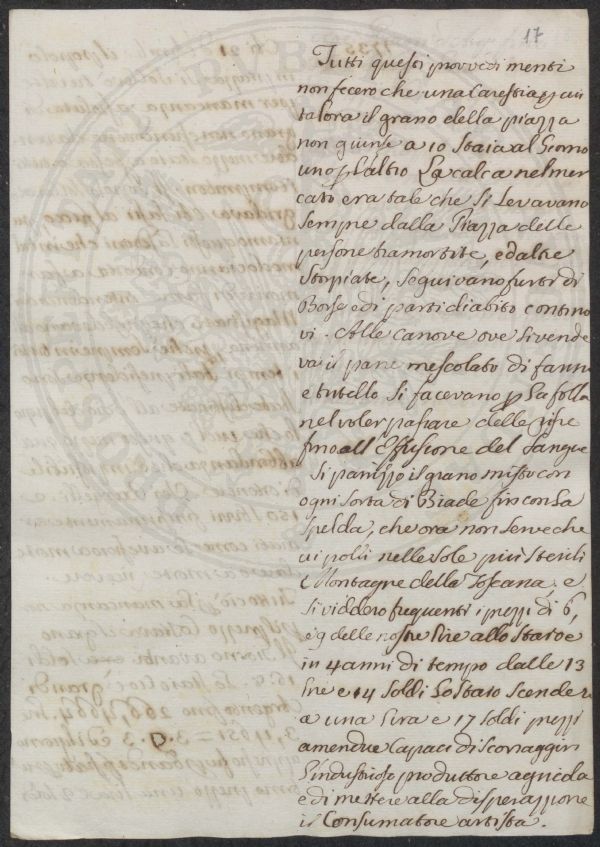 17
Tutti questi provvedimenti
non fecero che una Carestia
talora il grano della piazza
non giunse a 10 Staia al Giorno
uno p l'altro La calca nel mer
cato era tale che si Levavano
sempre dalla Piazza delle
persone tramortite, ed altre
storpiate, seguivano furti di
Borse e di parti di abito contino
vi. Alle canove ove si vende
va il pane mescolato di
e tritello si facevano p la folla
nel voler passare delle risse
fino all Effusione del Sangue
Si panizzò il grano misto con
ogni sorta di Biade fin con la
Spelda, che ora non serve che
ai polli nelle sole più sterili
Montagne della Toscana, e
si viddero frequenti i prezzi di 6,
e 9 delle nostre lire allo Staro e
in 4 anni di tempo dalle 13
lire e 14 Soldi lo Staro scendere
a una lira e 17 soldi prezzi
amendue capaci di scoraggir
l'industrioso produttore agricola
e di mettere alla disperazione
il Consumatore artista.